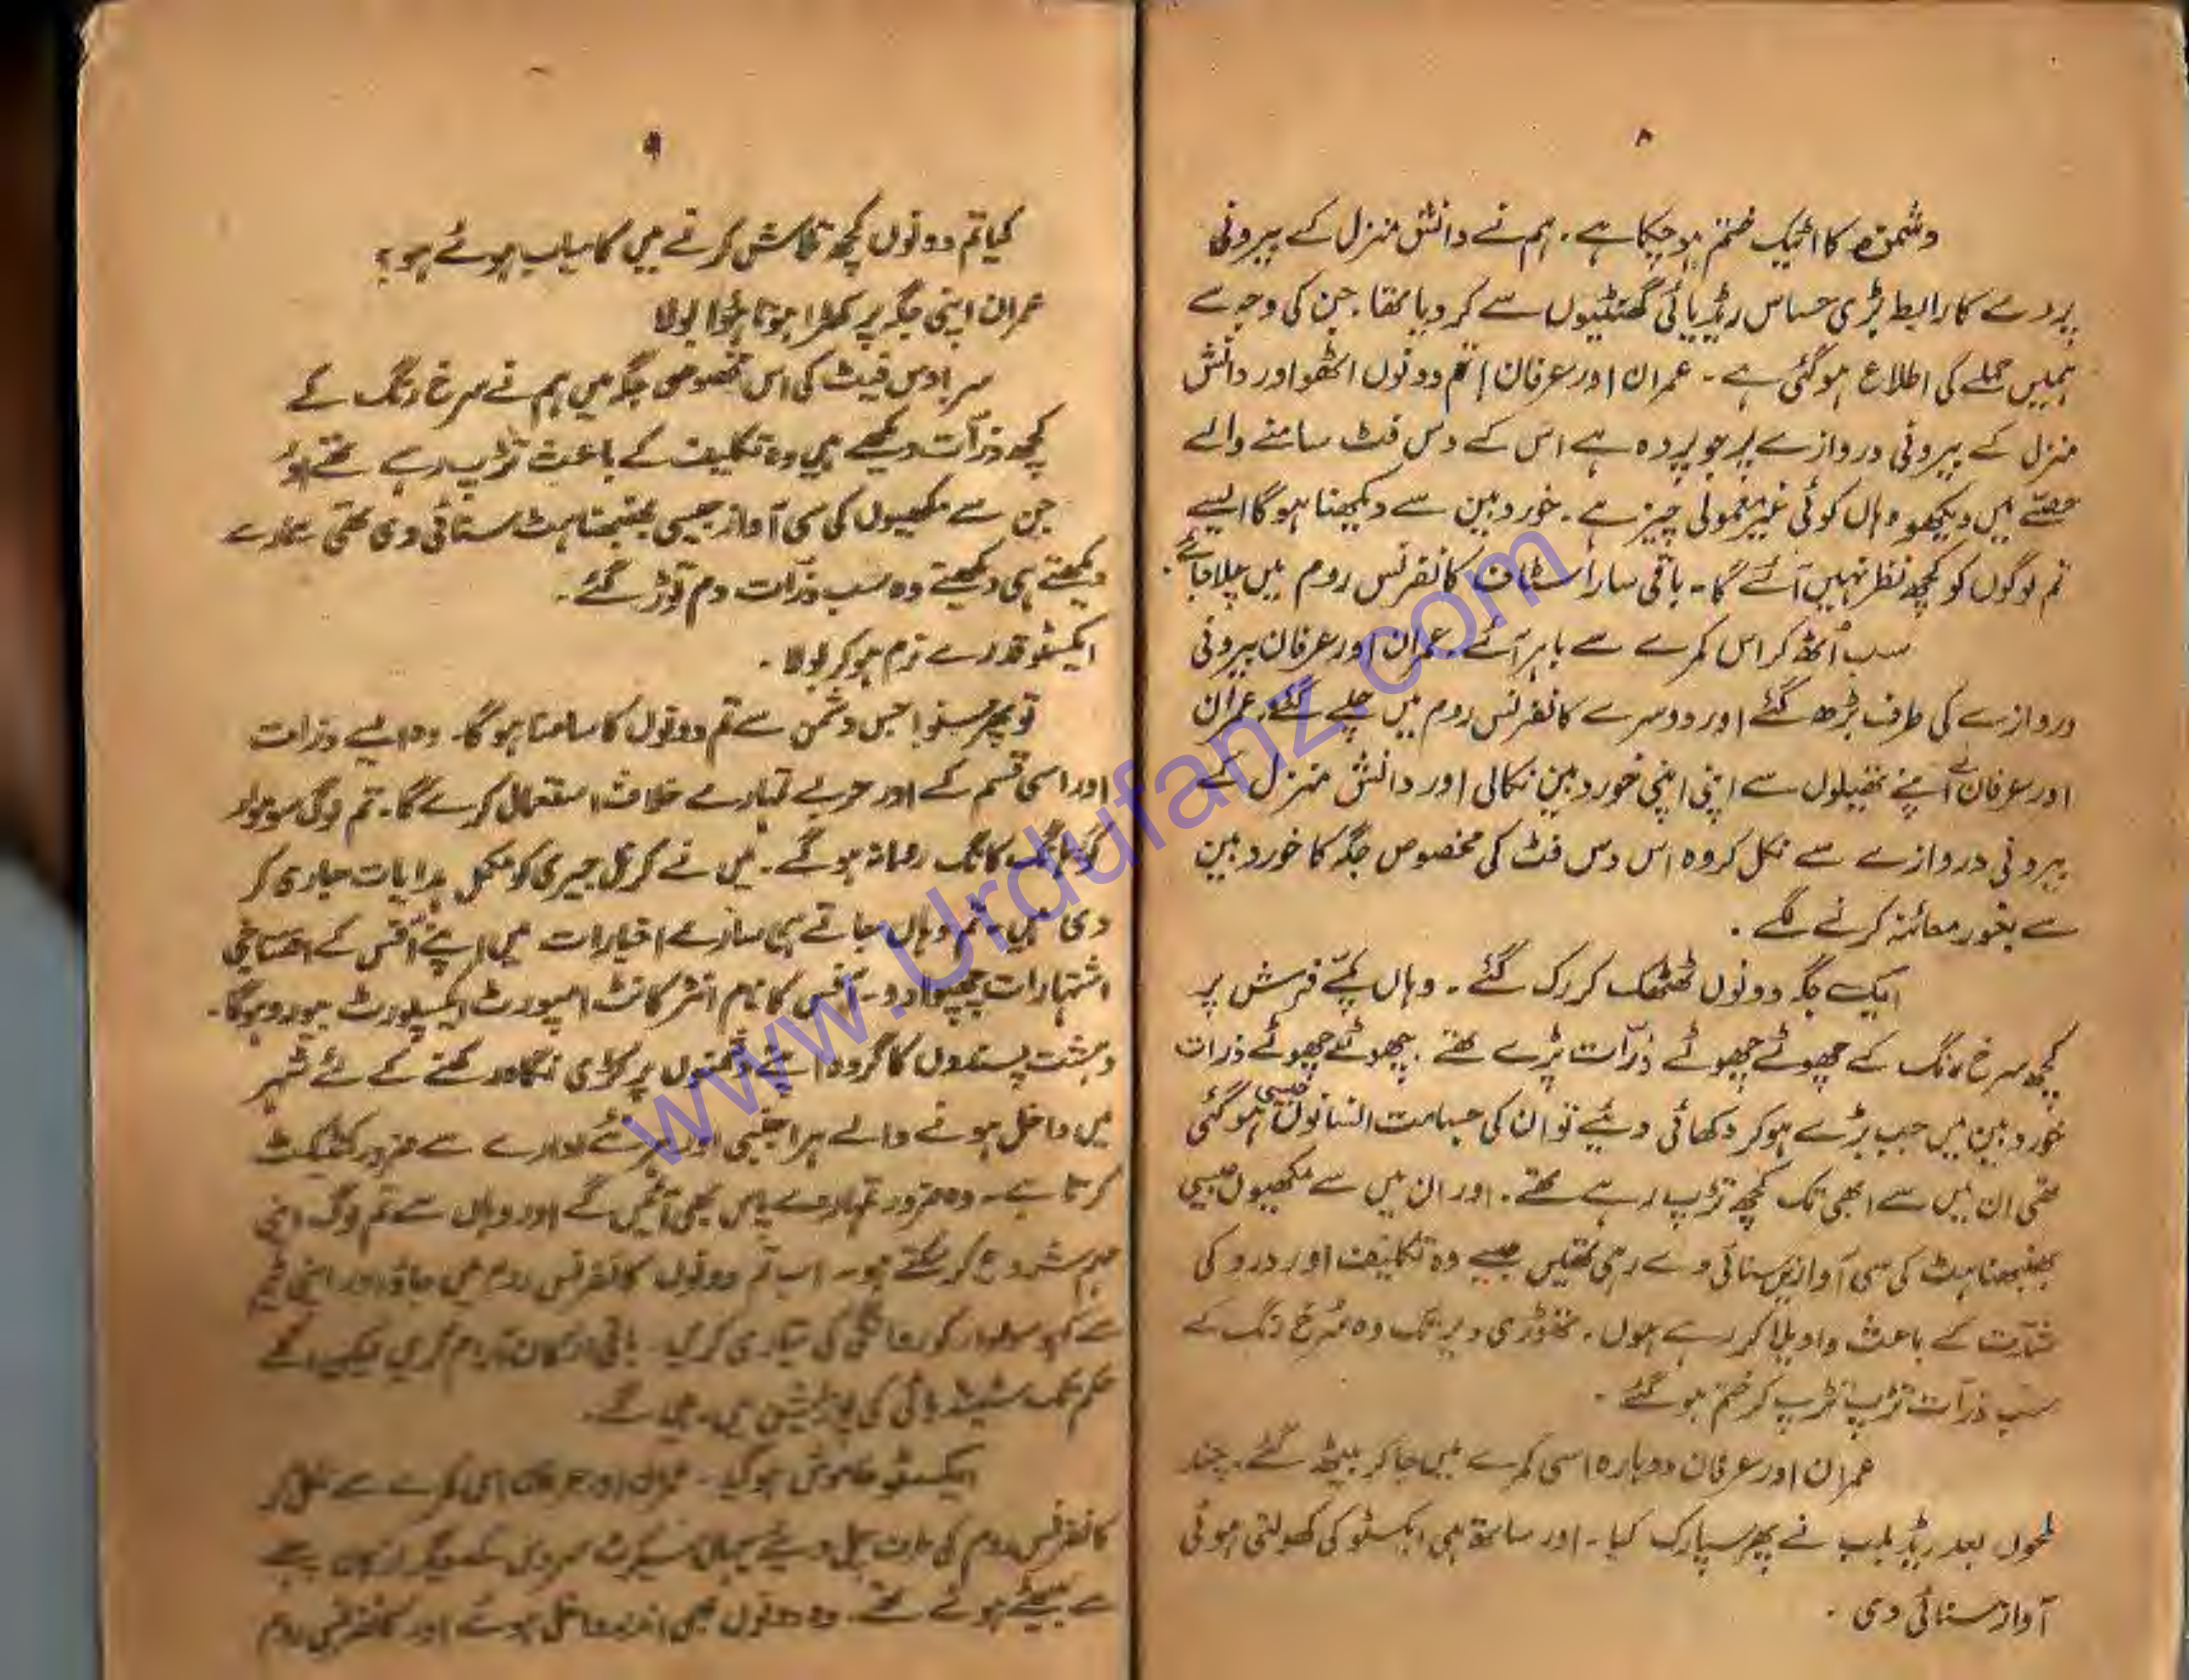 ۸
دشمنوں کا اٹیک ختم ہو چکا ہے۔ ہم نے دانش منزل کے بیرونی
پردے کا رابطہ بڑی حساس ریڈیائی گھنٹیوں سے کر دیا تھا۔ جن کی وجہ سے
ہمیں حملے کی اطلاع ہو گئی ہے۔ عمران اور عرفان! تم دونوں اٹھو اور دانش
منزل کے بیرونی دروازے پر جو پردہ ہے اس کے دس فٹ سامنے والے
حصے میں دیکھو وہاں کوئی غیر معمولی چیز ہے۔ خوردبین سے دیکھنا ہو گا ایسے
تم لوگوں کو کچھ نظر نہیں آئے گا۔ باقی سارا سٹاف کانفرنس روم میں چلا جائے۔
سب اُٹھ کر اس کمرے سے باہر آئے۔ عمران اور عرفان بیرونی
دروازے کی طرف بڑھ گئے اور دوسرے کانفرنس روم میں چلے گئے۔ عمران
اور عرفان نے اپنے تھیلوں سے اپنی اپنی خوردبین نکالی اور دانش منزل کے
بیرونی دروازے سے نکل کر وہ اس دس فٹ کی مخصوص جگہ کا خوردبین
سے بغور معائنہ کرنے لگے۔
ایک جگہ دونوں ٹھٹھک کر رک گئے۔ وہاں پکے فرش پر
کچھ سرخ رنگ کے چھوٹے چھوٹے ذرّات پڑے تھے۔ چھوٹے چھوٹے ذرات
خوردبین میں جب بڑے ہو کر دکھائی دیئے تو ان کی جسامت انسانوں جیسی ہو گئی
تھی ان میں سے ابھی تک کچھ تڑپ رہے تھے۔ اور ان میں سے مکھیوں جیسی
بھنبھناہٹ کی سی آوازیں سنائی دے رہی تھیں جیسے وہ تکلیف اور درد کی
شدّت کے باعث واویلا کر رہے ہوں۔ تھوڑی دیر تک وہ سُرخ رنگ کے
سب ذرّات تڑپ تڑپ کر ختم ہو گئے۔
عمران اور عرفان دوبارہ اسی کمرے میں جا کر بیٹھ گئے۔ چند
لمحوں بعد ریڈ بلب نے پھر سپارک کیا۔ اور ساتھ ہی ایکسٹو کی کھولتی ہوئی
آواز سنائی دی۔
۹
کیا تم دونوں کچھ تلاش کرنے میں کامیاب ہوئے ہو؟
عمران اپنی جگہ پر کھڑا ہوتا ہُوا بولا
سر! دس فیٹ کی اس مخصوص جگہ میں ہم نے سرخ رنگ کے
کچھ ذرّات دیکھے ہیں وہ تکلیف کے باعث تڑپ رہے تھے اور
جن سے مکھیوں کی سی آواز جیسی بھنبھناہٹ سنائی دی تھی ہمارے
دیکھتے ہی دیکھتے وہ سب ذرّات دم توڑ گئے۔
ایکسٹو قدرے نرم ہو کر بولا۔
تو پھر سنو! جس دشمن سے تم دونوں کا سامنا ہو گا۔ وہ ایسے ذرات
اور اسی قسم کے اور حربے تمہارے خلاف استعمال کرے گا۔ تم لوگ سوموار
کو ہانگ کانگ روانہ ہو گے۔ میں نے کرنل جیری کو مکمل ہدایات جاری کر
دی ہیں۔ تم وہاں جاتے ہی سارے اخبارات میں اپنے آفس کے افتتاحی
اشتہارات چھپوا دو۔ آفس کا نام انٹر کانٹ امپورٹ ایکسپورٹ بیورو ہو گا۔
دہشت پسندوں کا گروہ اپنے دشمنوں پر کڑی نگاہ رکھنے کے لئے شہر
میں داخل ہونے والے ہر اجنبی اور ہر نئے ادارے سے ضرور کنٹیکٹ
کرتا ہے۔ وہ ضرور تمہارے پاس بھی آئیں گے اور وہاں سے تم لوگ اپنی
مہم شروع کر سکتے ہو۔ اب تم دونوں کانفرنس روم میں جاؤ اور اپنی ٹیم
سے کہو سوموار کو روانگی کی تیاری کریں۔ باقی ارکان آرام کریں لیکن اگلے
حکم تک سٹینڈ بائی کی پوزیشن میں رہیں گے۔
ایکسٹو خاموش ہو گیا۔ عمران اور عرفان اس کمرے سے نکل کر
کانفرنس روم کی طرف چل دیئے جہاں سیکرٹ سروس کے دیگر ارکان پہلے
سے بیٹھے ہوئے تھے۔ وہ دونوں بھی اندر داخل ہوئے اور کانفرنس روم
www.Urdufanz.com